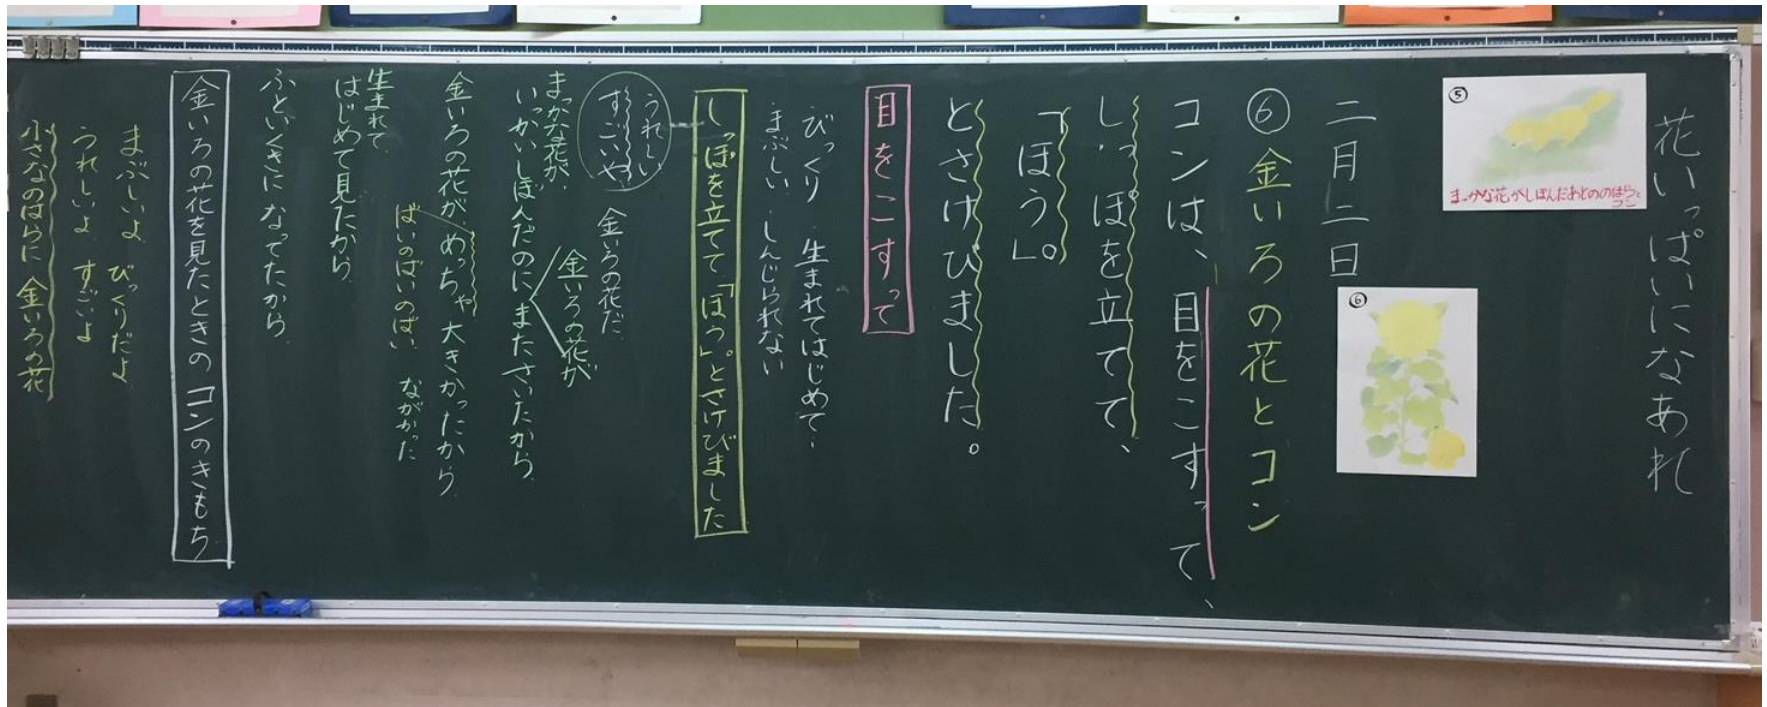 花いっぱいになあれ
⑤
まっかな花がしぼんだあとののはらと
コン
二月二日
⑥
⑥ 金いろの花とコン
コンは、目をこすって、
しっぽを立てて、
「ほう」。
とさけびました。
目をこすって
びっくり 生まれてはじめて…
まぶしい しんじられない
しっぽを立てて、「ほう」。とさけびました
うれしい
すごいや
金いろの花だ
金いろの花が
まっかな花が、
いっかいしぼんだのにまたさいたから
金いろの花が めっちゃ 大きかったから
ばいのばいのばい ながかった
生まれて
はじめて見たから
ふといくきになってたから
金いろの花を見たときのコンのきもち
まぶしいよ びっくりだよ
うれしいよ すごいよ
小さなのはらに 金いろの花